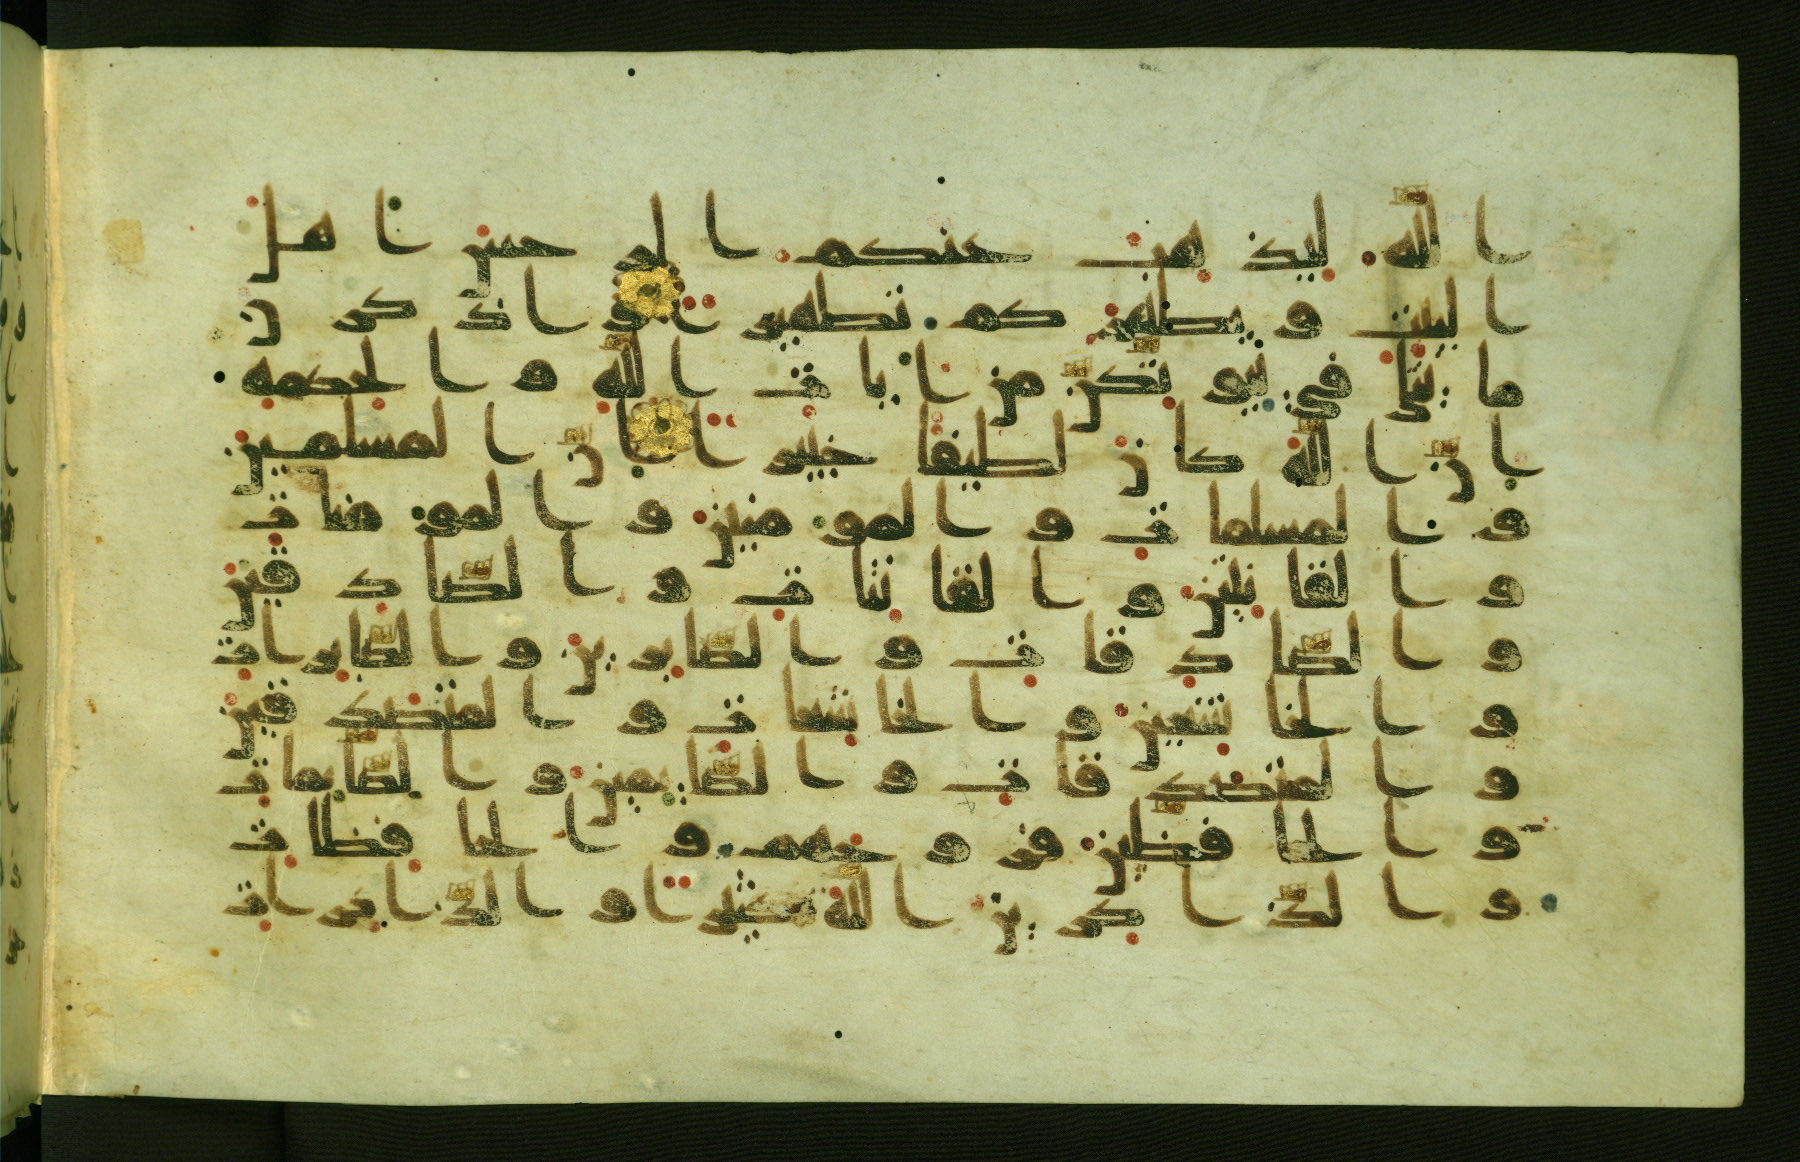 الله ليذهب عنكم الرجس اهل
البيت ويطهركم تطهيرا واذكرن
ما يتلى في بيوتكن من ايات الله والحكمة
ان الله كان لطيفا خبيرا ان المسلمين
والمسلمات والمومنين والمومنات
والقانتين والقانتات والصادقين
والصادقات والصابرين والصابرات
والخاشعين والخاشعات والمتصدقين
والمتصدقات والصايمين والصايمات
والحافظين فروجهم والحافظات
والذاكرين الله كثيرا والذاكرات